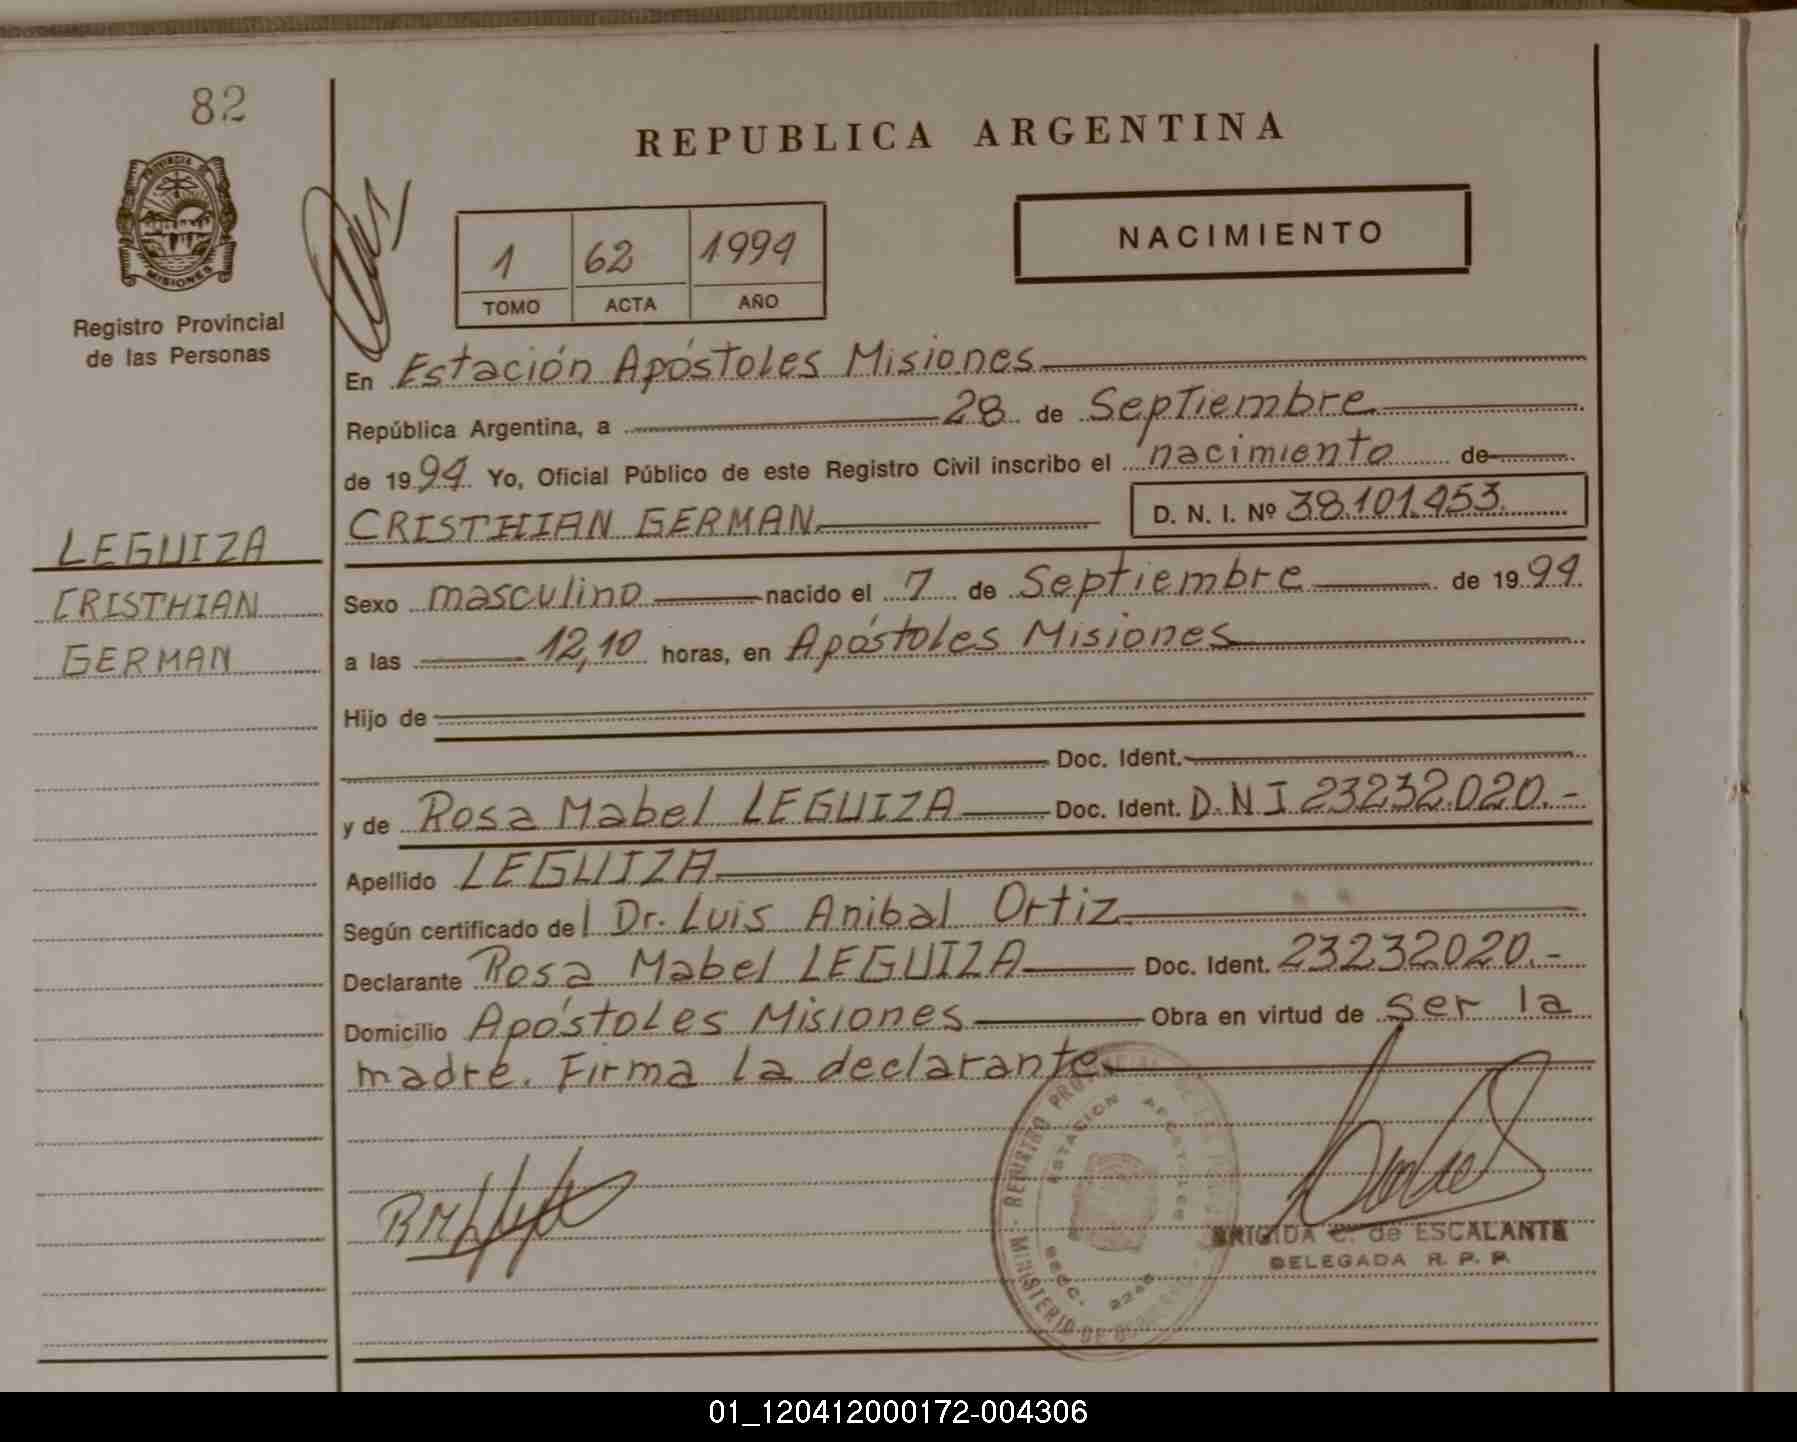 82
PROVINCIA DE
MISIONES
Registro Provincial
de las Personas
LEGUIZA
CRISTHIAN
GERMAN
REPUBLICA ARGENTINA
1 62 1994
TOMO ACTA AÑO
NACIMIENTO
En Estación Apóstoles Misiones
República Argentina, a 28 de Septiembre
de 1994 Yo, Oficial Público de este Registro Civil inscribo el nacimiento de
CRISTHIAN GERMAN D. N. I. Nº 38.101.453.
Sexo masculino nacido el 7 de Septiembre de 1994
a las 12,10 horas, en Apóstoles Misiones
Hijo de
Doc. Ident.
y de Rosa Mabel LEGUIZA Doc. Ident. D.N I 23232.020.-
Apellido LEGUIZA
Según certificado del Dr. Luis Anibal Ortiz
Declarante Rosa Mabel LEGUIZA Doc. Ident. 23232020.-
Domicilio Apóstoles Misiones Obra en virtud de ser la
madre. Firma la declarante
REGISTRO PROVINCIAL DE LAS
MINISTERIO DE
ESTACION APOSTOLES
SECC. 2240
BRIGIDA C. de ESCALANTE
DELEGADA R. P. P.
01_120412000172-004306